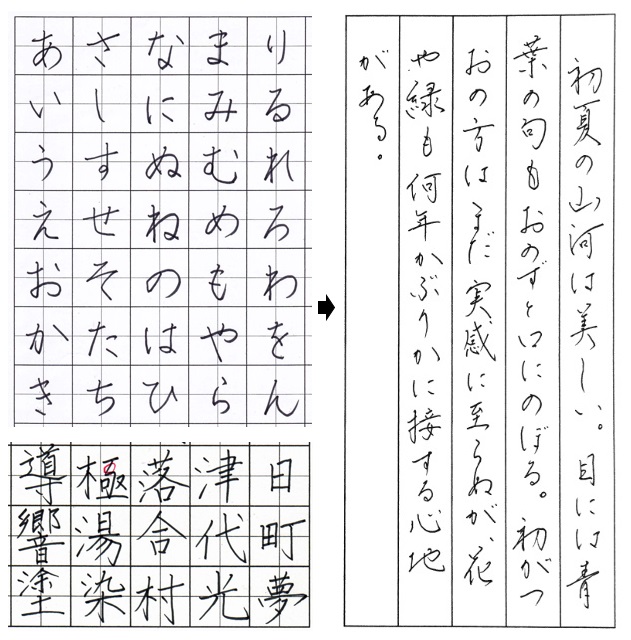 あいうえおかき
さしすせそたち
なにぬねのはひ
まみむめもやら
りるれろわをん
導響塗
極湯染
落合村
津代光
日町夢
初夏の山河は美しい。目には青
葉の句もおのずと口にのぼる。初がつ
おの方はまだ実感に至らぬが、花
や緑も何年かぶりかに接する心地
がある。